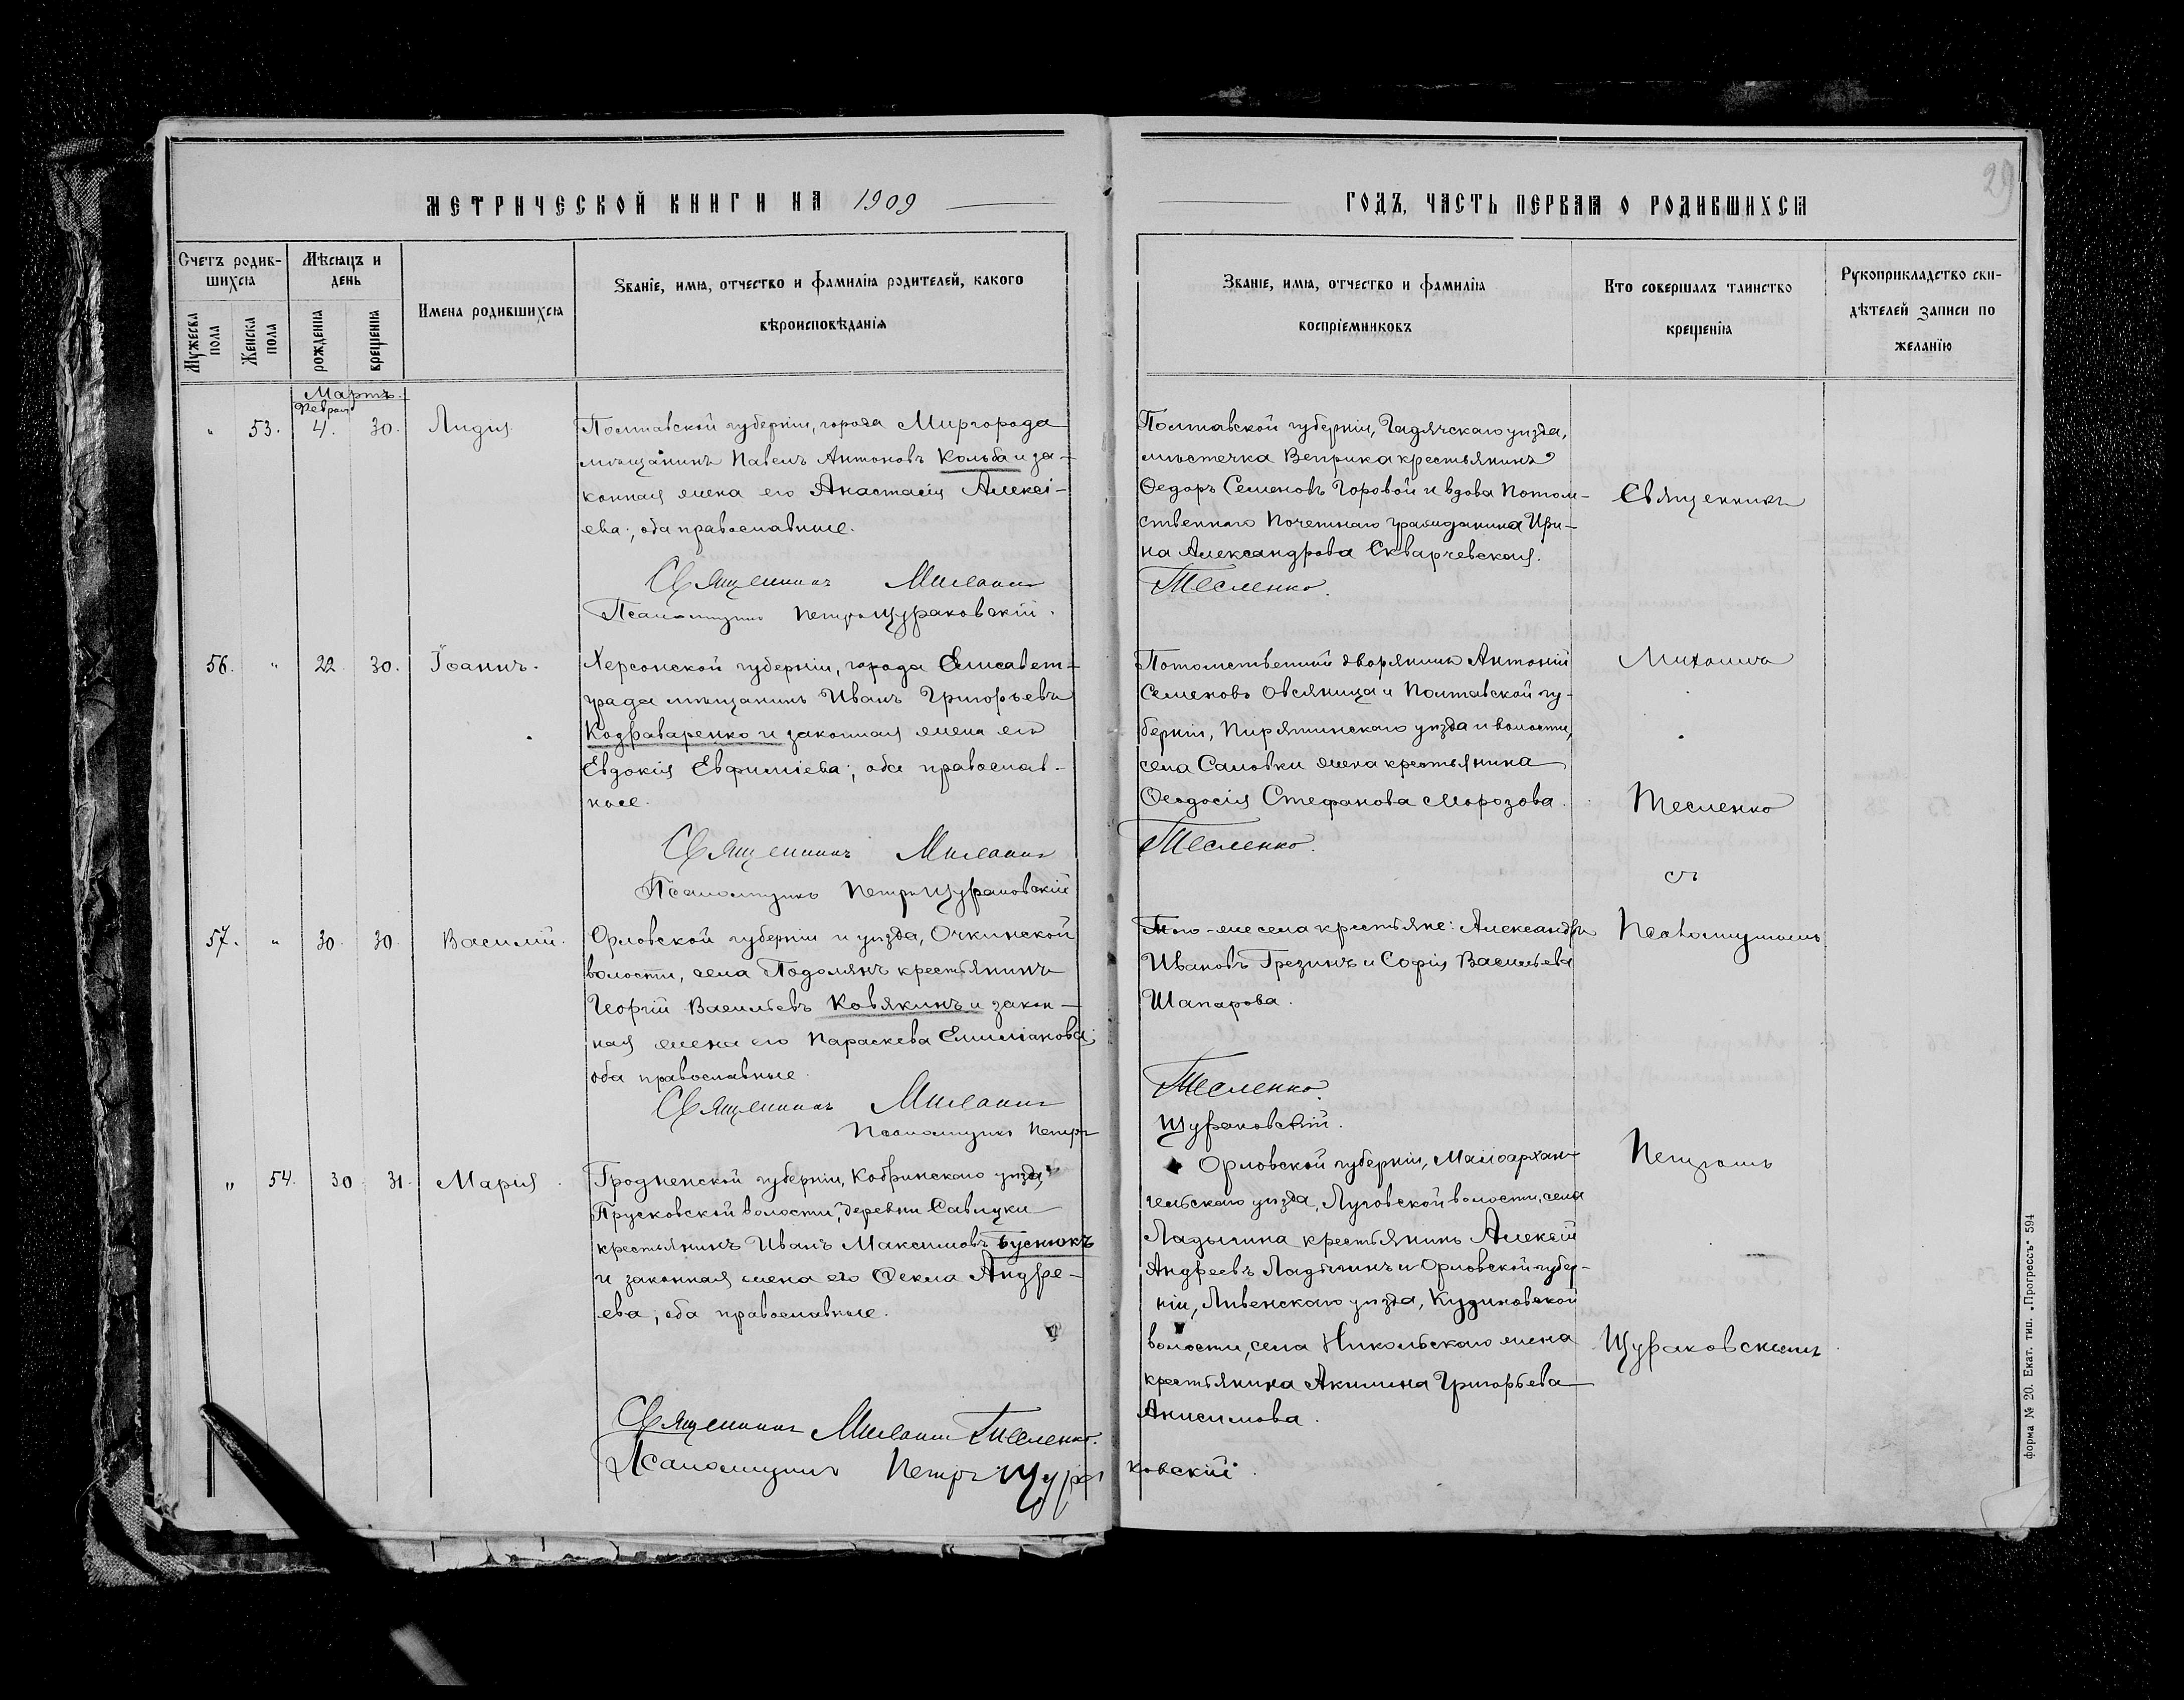 29
МЕТРИЧЕСКОЙ КНИГИ НА 1909
ГОДЪ, ЧАСТЬ ПЕРВАЯ О РОДИВШИХСЯ
Счетъ родив-
шихся
Мужеска
пола
Женска
пола
Мѣсяцъ и
день
рожденія
крещенія
Имена родившихся
Званіе, имя, отчество и фамилія родителей, какого
вѣроисповѣданія
Званіе, имя, отчество и фамилія
воспріемниковъ
Кто совершалъ таинство
крещенія
Рукоприкладство сви-
дѣтелей записи по
желанію
Мартъ.
Февраля
" 53. 4. 30. Лидія
Полтавской губерніи, города Миргорода
мѣщанинъ Павелъ Антоновъ Кольба и за-
конная жена его Анастасія Алексі-
ева; оба православные.
Священникъ Михаилъ
Псаломщикъ Петръ Щураковскій.
Полтавской губерніи, Гадячскаго уѣзда,
мѣстечка Веприка крестьянинъ
Ѳедоръ Семеновъ Горовой и вдова Потом-
ственнаго Почетнаго гражданина Ири-
на Александрова Скварчевская.
Тесленко.
56. " 22 30. Іоаннъ.
Херсонской губерніи, города Елисавет-
града мѣщанинъ Иванъ Григорьевъ
Кодраваренко и законная жена его
Евдокія Евфиміева; оба православ-
ные.
Священникъ Михаилъ
Псаломщикъ Петръ Щураковскій
Потомственный дворянинъ Антоній
Семеновъ Овсяница и Полтавской гу-
берніи, Пирятинскаго уѣзда и волости,
села Саловки жена крестьянина
Ѳеодосія Стефанова Морозова.
Тесленко.
57. " 30. 30. Василій.
Орловской губерніи и уѣзда, Очкинской
волости, села Подолянъ крестьянинъ
Георгій Васильевъ Ковякинъ и закон-
ная жена его Параскева Емиліанова;
оба православные.
Священникъ Михаилъ
Псаломщикъ Петръ
Того-же села крестьяне: Александръ
Ивановъ Грезинъ и Софія Васильева
Шапарова.
Тесленко.
Щураковскій.
" 54. 30 31. Марія.
Гродненской губерніи, Кобринскаго уѣзда,
Прусковской волости, деревни Савлуки
крестьянинъ Иванъ Максимовъ Буснюкъ
и законная жена его Ѳекла Андре-
ева; оба православные.
Священникъ Михаилъ Тесленко.
Псаломщикъ Петръ Щура
Орловской губерніи, Малоархан-
гельскаго уѣзда, Луговской волости, села
Ладыгина крестьянинъ Алексій
Андреевъ Ладыгинъ и Орловской губер-
ніи, Ливенскаго уѣзда, Кудиновской
волости, села Никольскаго жена
крестьянина Акилина Григорьева
Анисимова.
ковскій.
Священникъ
Михаилъ
Тесленко
съ
Псаломщикомъ
Петромъ
Щураковскимъ
форма № 20. Екат. тип. „Прогрессъ" 594